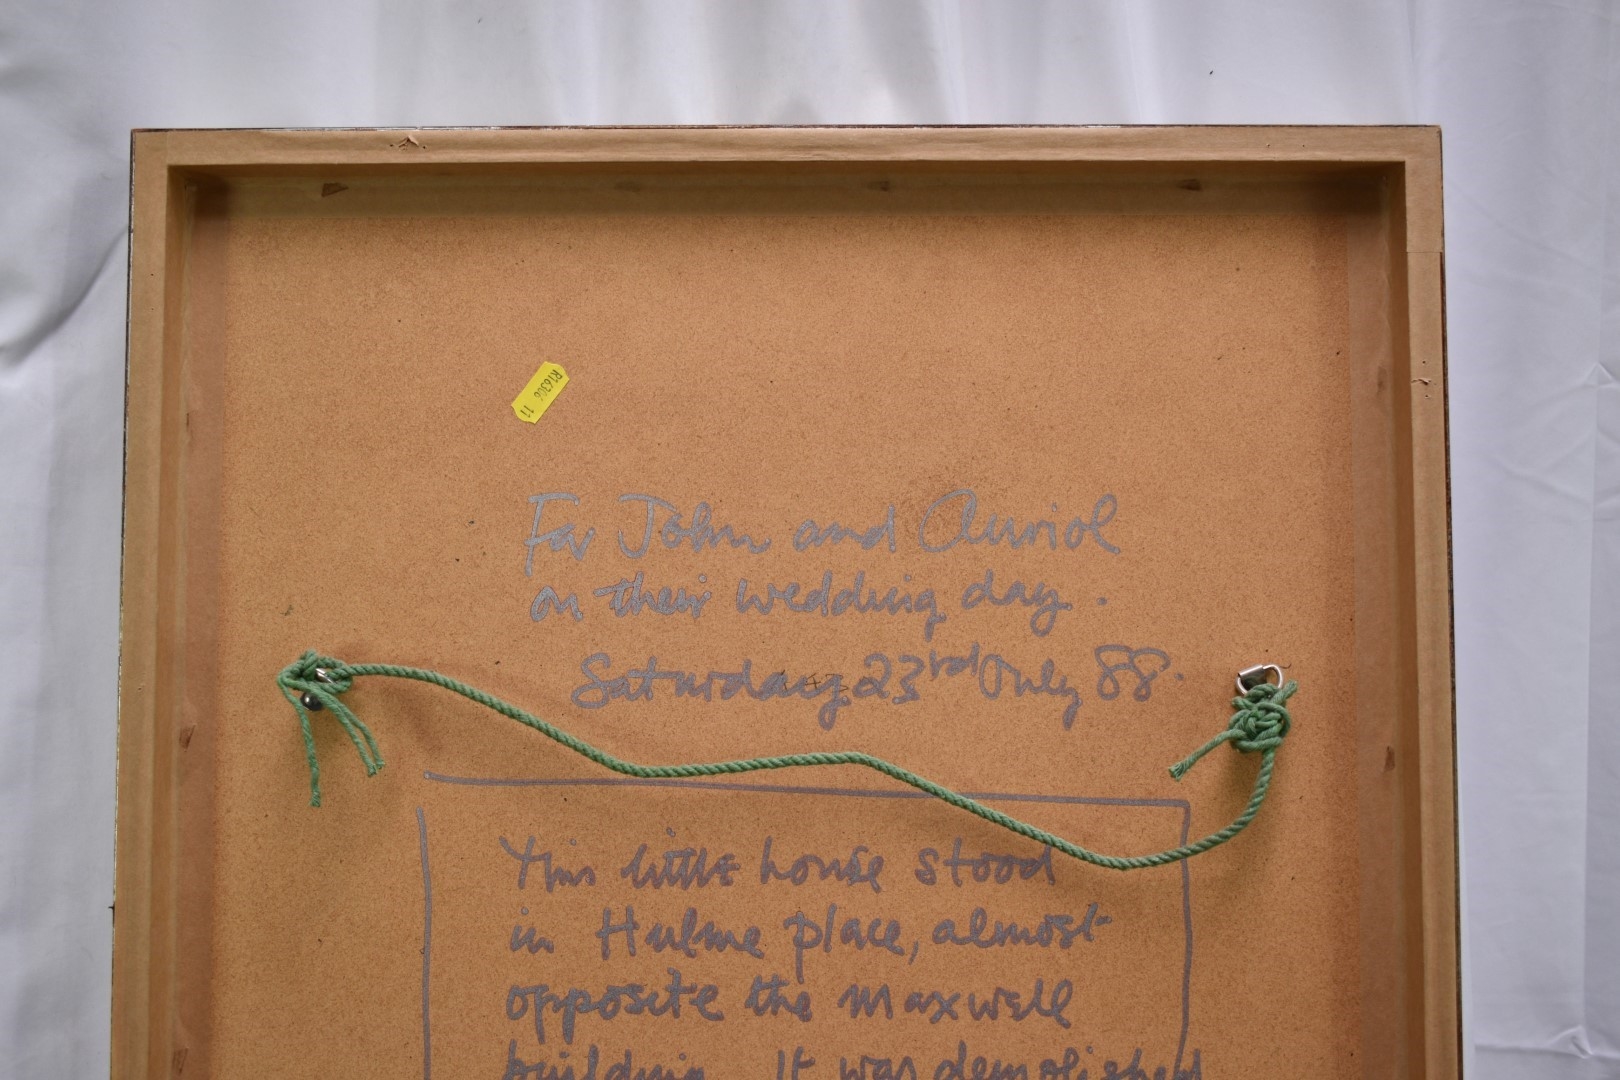 R16306 11
For John and Auriol
on their wedding day.
Saturday 23rd July 88.
This little house stood
in Hulme place, almost
opposite the Maxwell
building. It was demolished